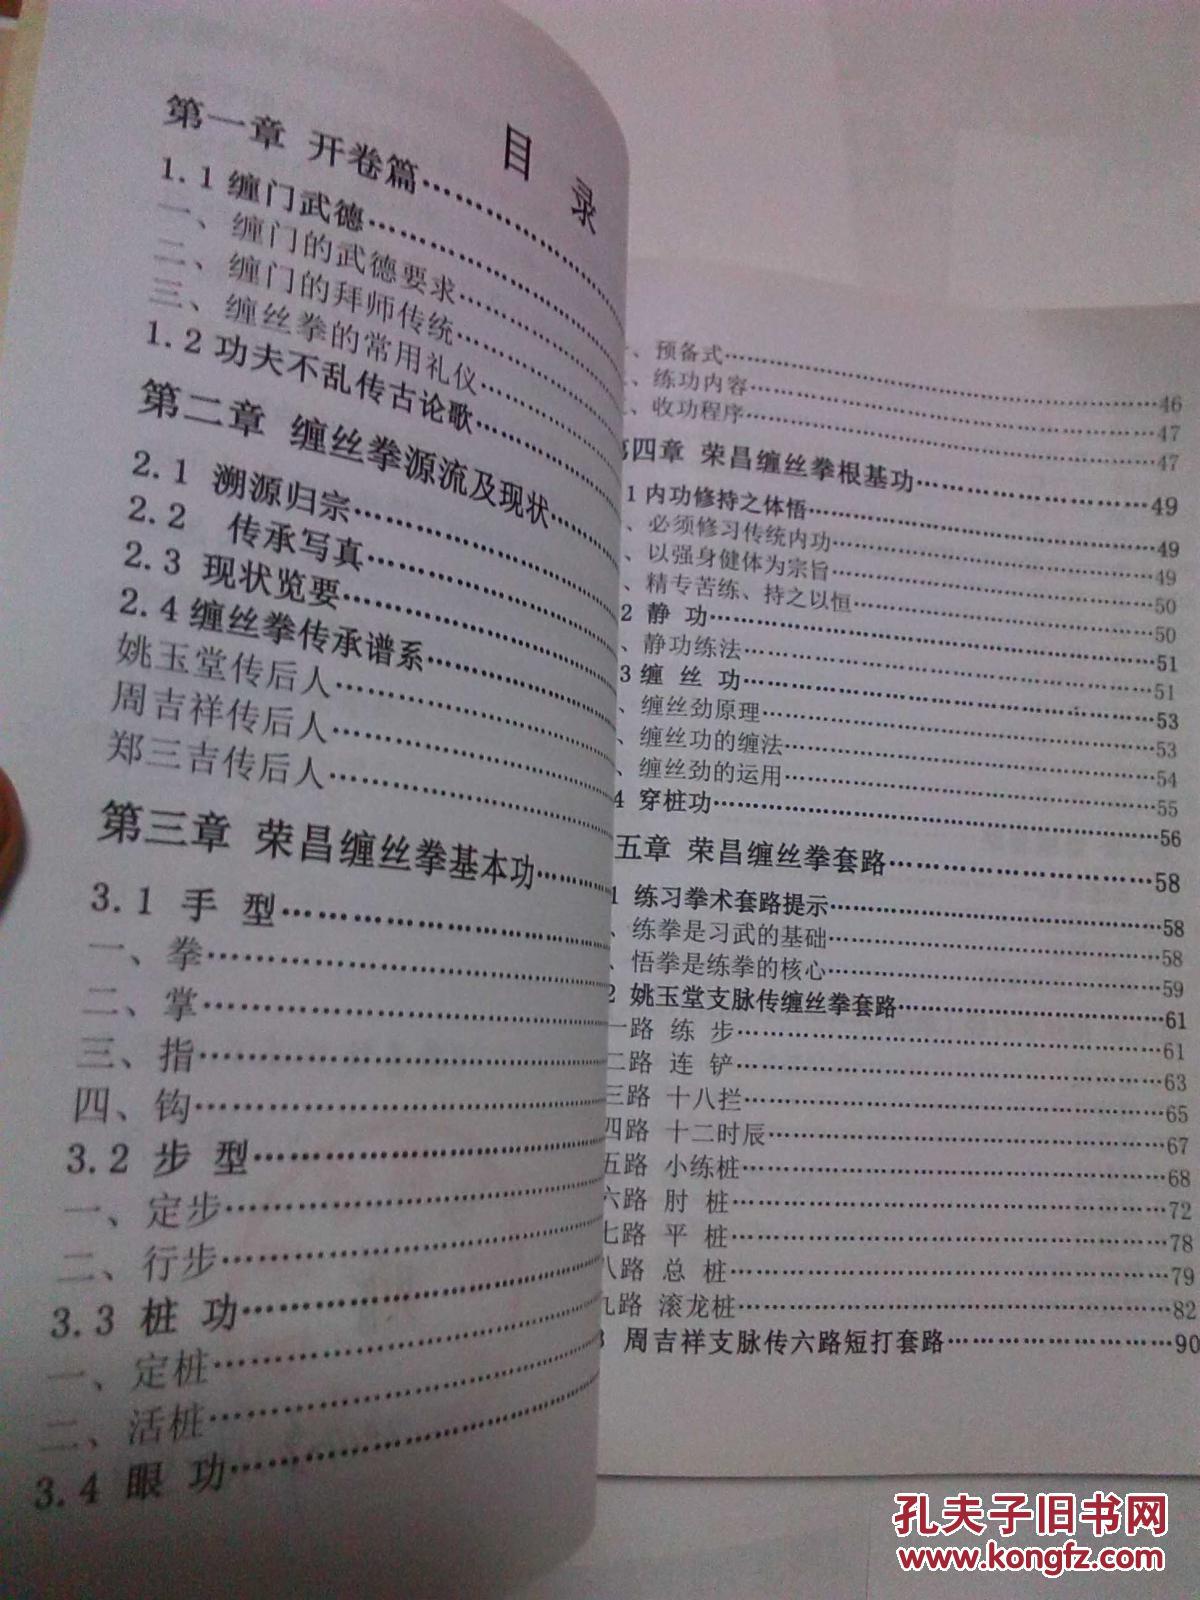 目 录
第一章 开卷篇
1.1缠门武德
一、缠门的武德要求
二、缠门的拜师传统
三、缠丝拳的常用礼仪
1.2功夫不乱传古论歌
第二章 缠丝拳源流及现状
2.1 溯源归宗
2.2 传承写真
2.3 现状览要
2.4缠丝拳传承谱系
姚玉堂传后人
周吉祥传后人
郑三吉传后人
第三章 荣昌缠丝拳基本功
3.1 手 型
一、拳
二、掌
三、指
四、钩
3.2 步 型
一、定步
二、行步
3.3 桩 功
一、定桩
二、活桩
3.4 眼 功
、预备式……46
、练功内容……47
、收功程序……47
第四章 荣昌缠丝拳根基功……49
1内功修持之体悟……49
、必须修习传统内功……49
、以强身健体为宗旨……50
、精专苦练、持之以恒……50
2 静 功……51
、静功练法……51
3缠 丝 功……53
、缠丝劲原理……53
、缠丝功的缠法……54
、缠丝劲的运用……55
4 穿桩功……56
五章 荣昌缠丝拳套路……58
1 练习拳术套路提示……58
、练拳是习武的基础……58
、悟拳是练拳的核心……59
2 姚玉堂支脉传缠丝拳套路……61
一路 练 步……61
二路 连 铲……63
三路 十八拦……65
四路 十二时辰……67
五路 小练桩……68
六路 肘 桩……72
七路 平 桩……78
八路 总 桩……79
九路 滚龙桩……82
3 周吉祥支脉传六路短打套路……90
孔夫子旧书网
www.kongfz.com